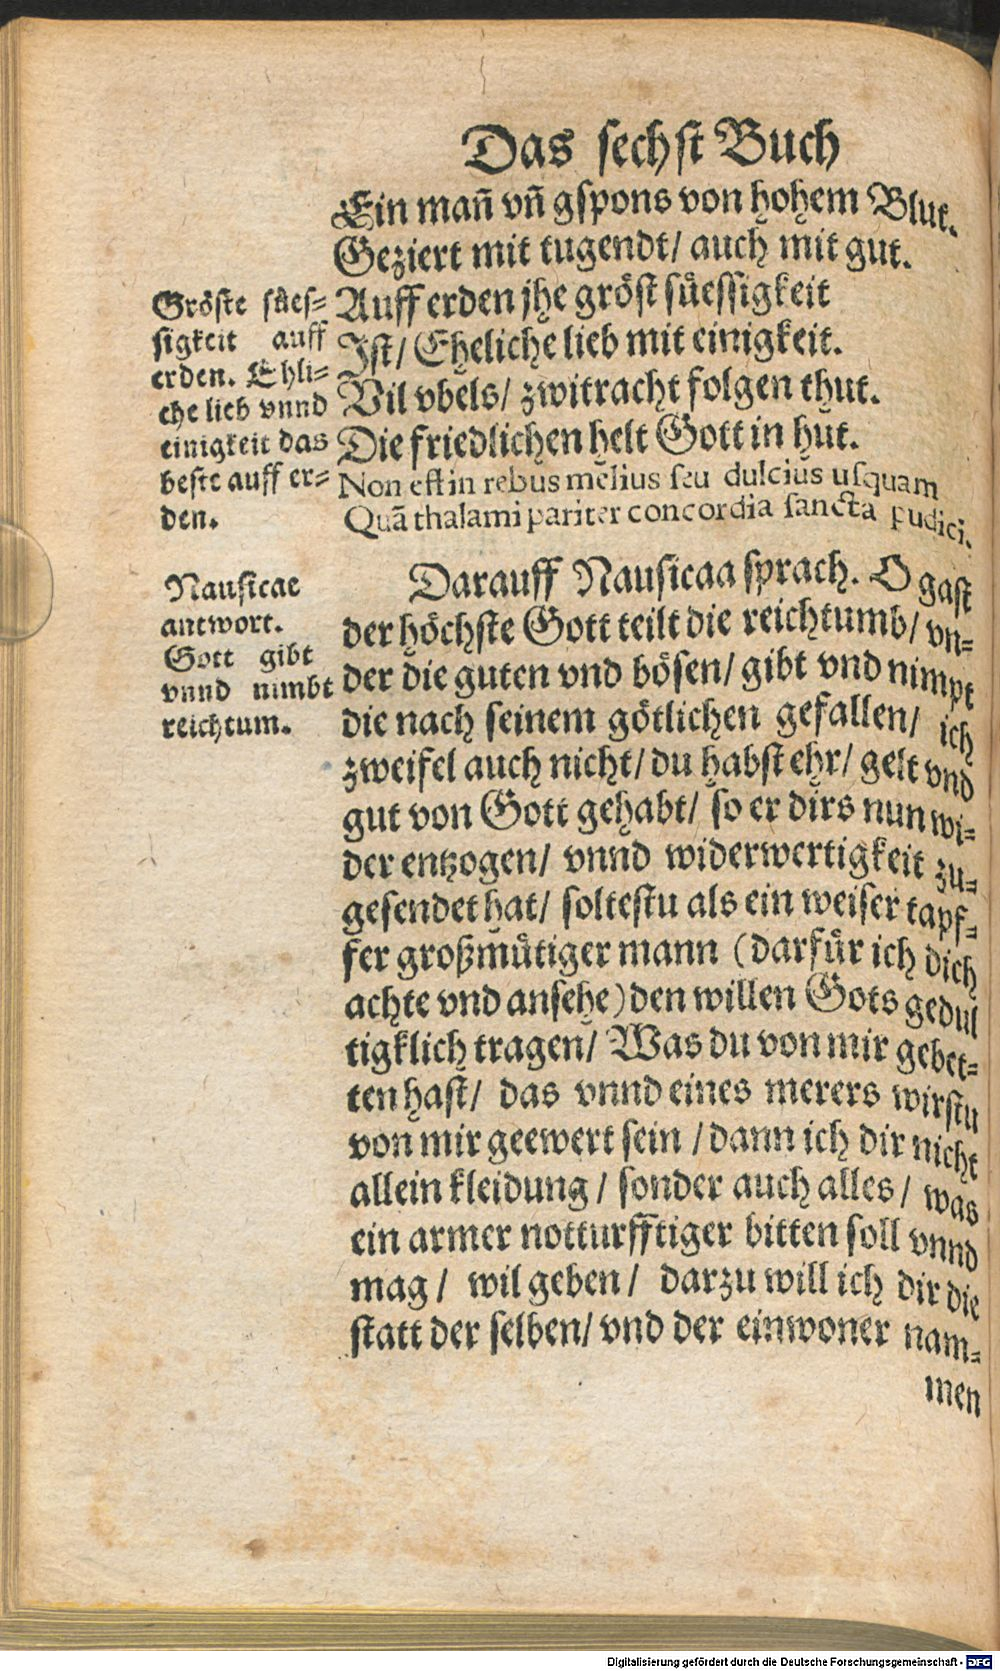 Das sechst Buch
Ein mañ vñ gspons von hohem Blut.
Geziert mit tugendt/ auch mit gut.
Auff erden jhe gröst süessigkeit
Ist/ Eheliche lieb mit einigkeit.
Vil vbels/ zwitracht folgen thut.
Die friedlichen helt Gott in hut.
Non est in rebus melius seu dulcius usquam
Quã thalami pariter concordia sancta pudici.
Gröste sües-
sigkeit auff
erden. Ehli-
che lieb vnnd
einigkeit das
beste auff er-
den.
Darauff Nausicaa sprach. O gast
der höchste Gott teilt die reichtumb/ vn-
der die guten vnd bösen/ gibt vnd nimpt
die nach seinem götlichen gefallen/ ich
zweifel auch nicht/ du habst ehr/ gelt vnd
gut von Gott gehabt/ so er dirs nun wi-
der entzogen/ vnnd widerwertigkeit zu-
gesendet hat/ soltestu als ein weiser tapf-
fer großmütiger mann (darfür ich dich
achte vnd ansehe) den willen Gots gedul
tigklich tragen/ Was du von mir gebet-
ten hast/ das vnnd eines merers wirstu
von mir geewert sein / dann ich dir nicht
allein kleidung / sonder auch alles / was
ein armer notturfftiger bitten soll vnnd
mag / wil geben / darzu will ich dir die
statt der selben/ vnd der einwoner nam-
men
Nausicae
antwort.
Gott gibt
vnnd nimbt
reichtum.
Digitalisierung gefördert durch die Deutsche Forschungsgemeinschaft - DFG